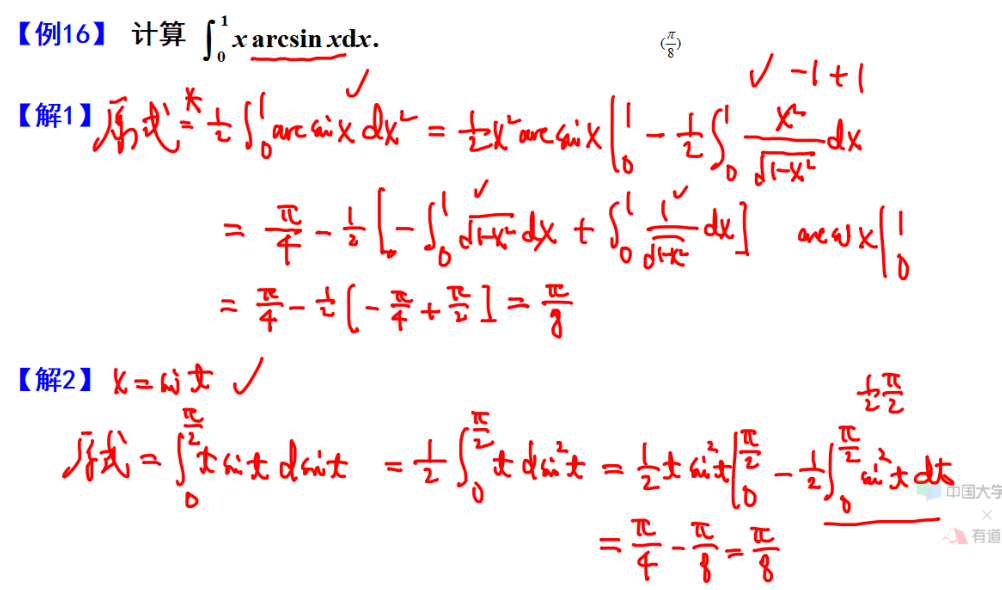 【例16】 计算 ∫₀¹ x arcsin xdx. (π/8)
✓ -1+1
【解1】 原式 = 1/2 ∫₀¹ arcsin x dx² = 1/2 x² arcsin x |₀¹ - 1/2 ∫₀¹ x²/√(1-x²) dx
= π/4 - 1/2 [ - ∫₀¹ √(1-x²) dx + ∫₀¹ 1/√(1-x²) dx ] x |₀¹
= π/4 - 1/2 [ - π/4 + π/2 ] = π/8
【解2】 x = sin t ✓
1/2 π/2
原式 = ∫₀^(π/2) t sin t d sin t = 1/2 ∫₀^(π/2) t d sin² t = 1/2 t sin² t |₀^(π/2) - 1/2 ∫₀^(π/2) sin² t dt
= π/4 - π/8 = π/8
中国大学
×
有道